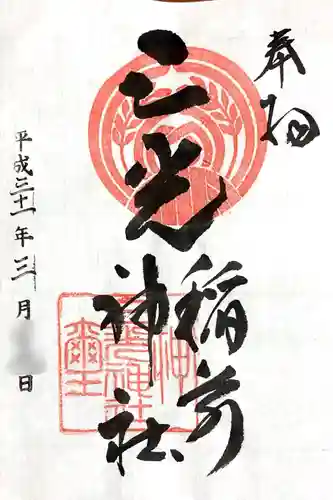 奉拝
三光稲荷
神社
平成三十一年三月 日